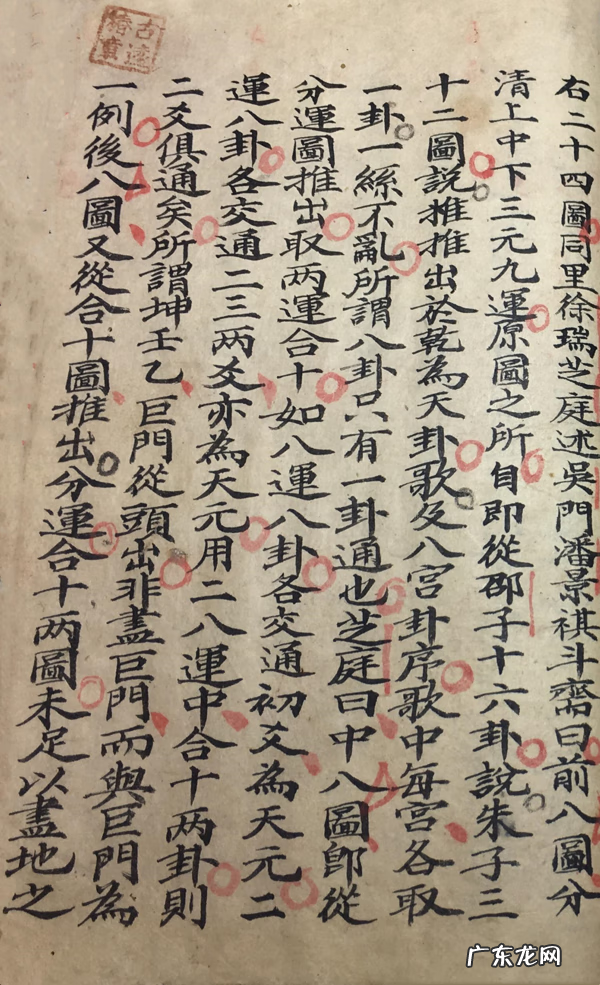 右二十四圖同里徐瑞芝庭述吳門潘景祺斗齋曰前八圖分
清上中下三元九運原圖之所自即從邵子十六卦說朱子三
十二圖說推推出於乾為天卦歌及八宮卦序歌中每宮各取
一卦一絲不亂所謂八卦只有一卦通也芝庭曰中八圖即從
分運圖推出取两運合十如八運八卦各交通初爻為天元二
運八卦各交通二三两爻亦為天元用二八運中合十两卦則
二爻俱通矣所謂坤壬乙巨門從頭出非盡巨門而與巨門為
一例後八圖又從合十圖推出分運合十两圖未足以盡地之
广东龙网